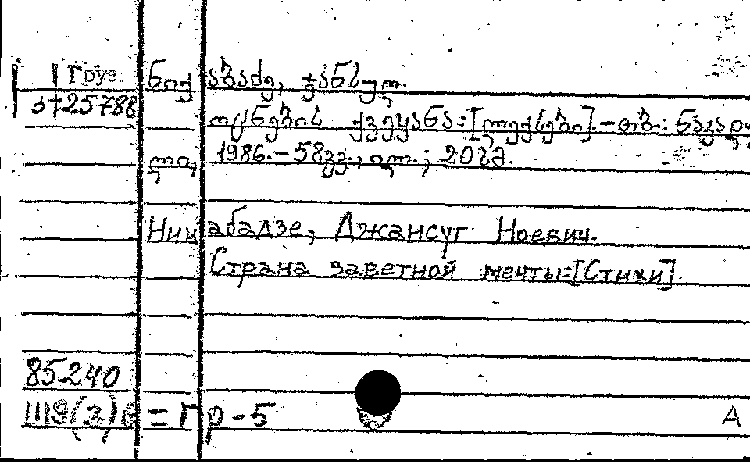 Груз
3725788 ნიჟაბაძე, ჯანსუღ.
ოცნების ქვეყანა: [ლექსები]. – თბ.: ნაკადუ
ლი, 1986. – 58გვ., ილ.; 20სმ.
Нижабадзе, Джансуг Ноевич.
Страна заветной мечты: [Стихи].
85.240
1119(2)6 = Гр-5
А